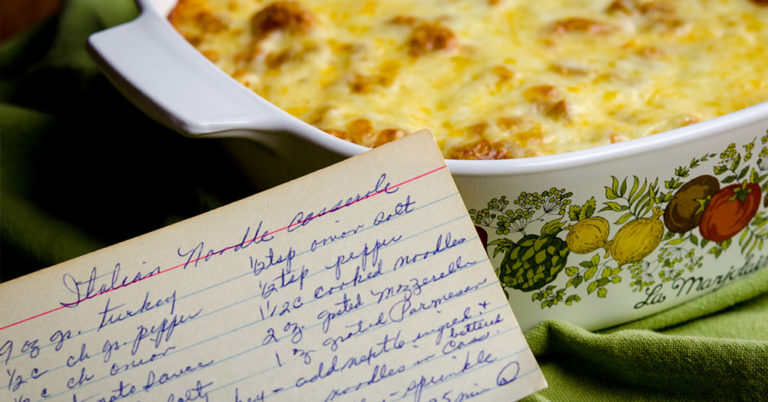 Italian Noodle Casserole
9 oz gr. turkey
½ c ch gr. pepper
½ c ch onion
mato sauce
salt
½ tsp onion salt
½ tsp pepper
1½ c cooked noodles
2 oz grated Mozzerella
1 oz grated Parmesan
key - add next 6 ingred &
noodles in buttered Cass.
- sprinkle
5 min @
La Marjolaine